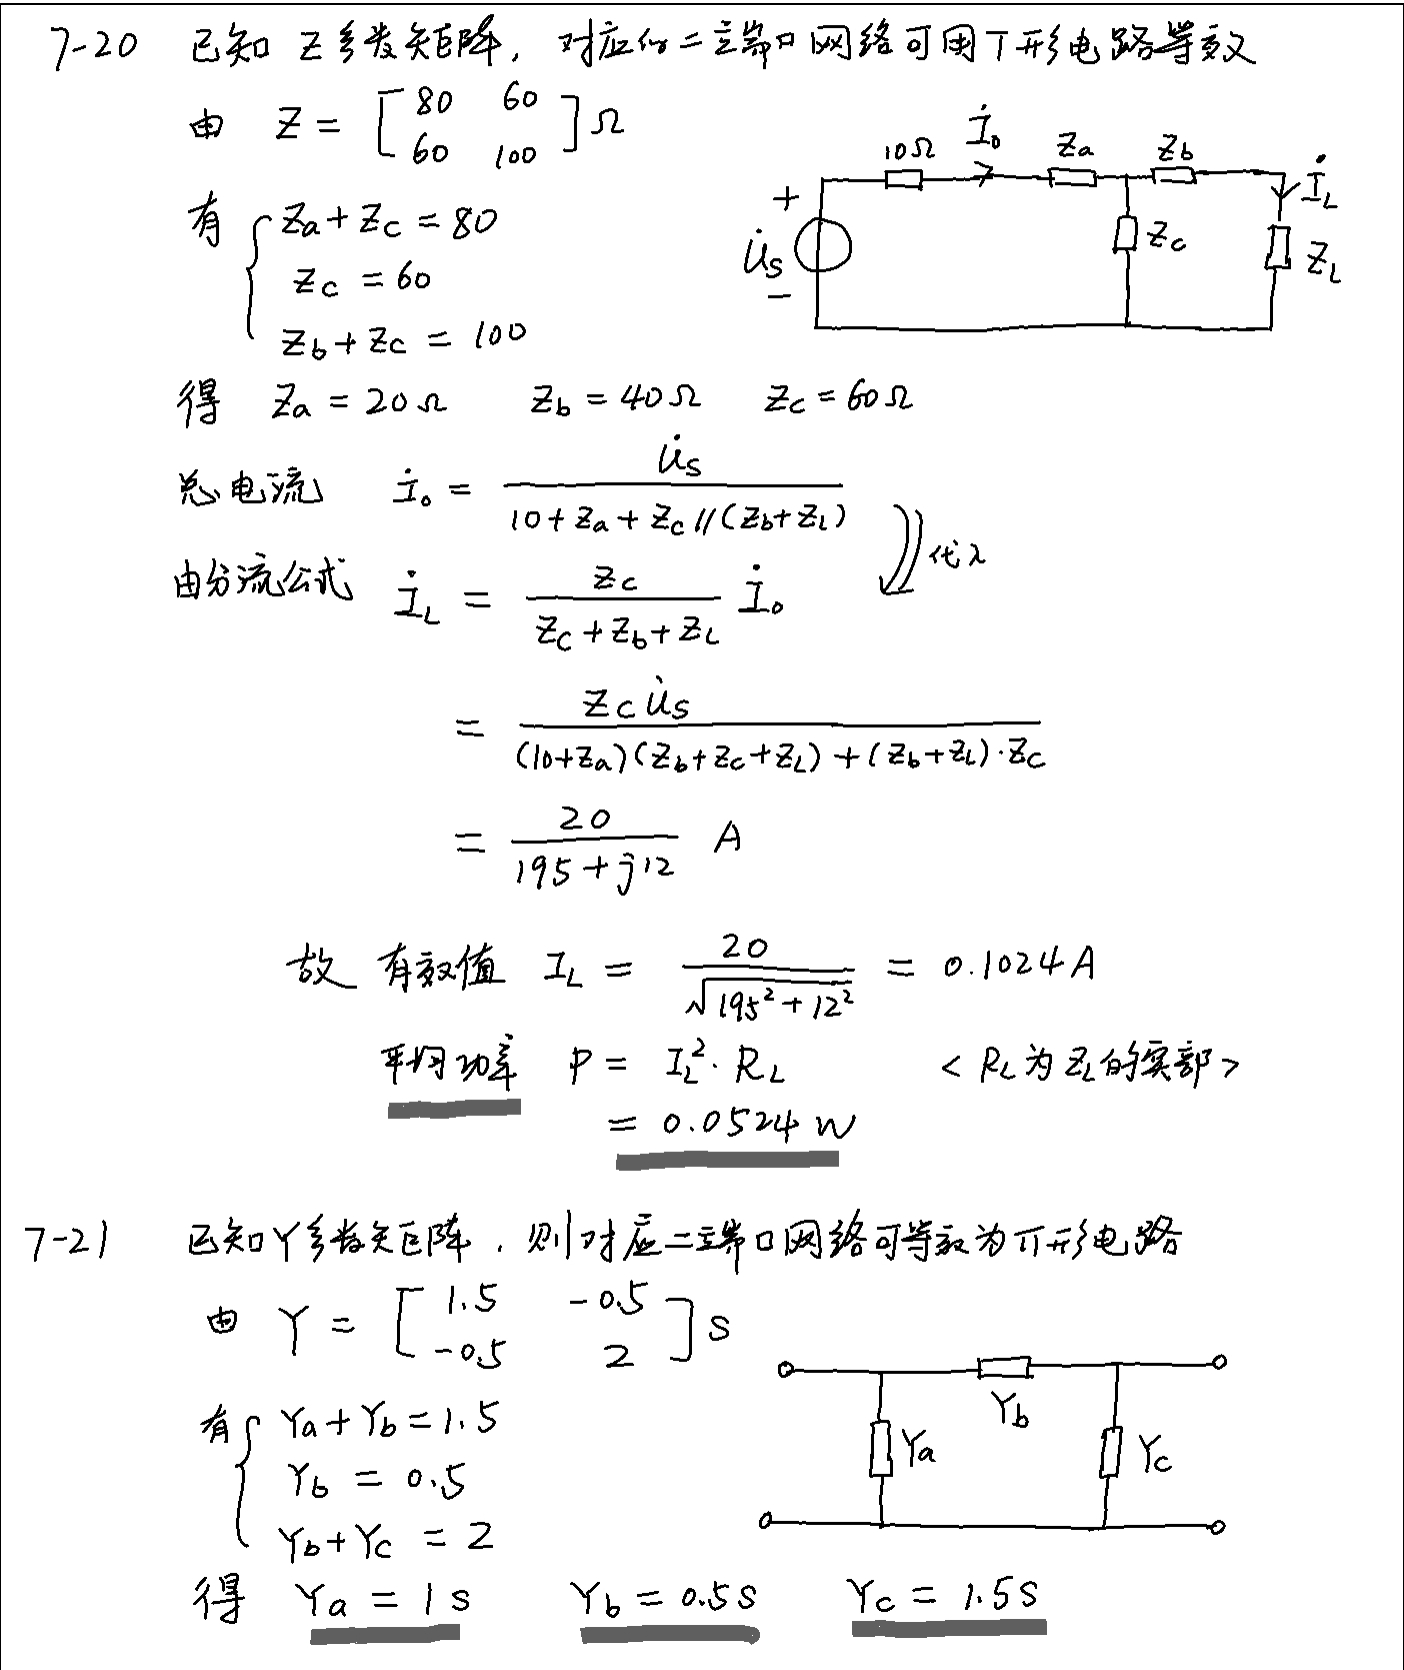 7-20 已知 Z参数矩阵, 对应的二端口网络可用T形电路等效
由 Z = [80 60 60 100] Ω
有 { Za + Zc = 80
Zc = 60
Zb + Zc = 100
10Ω İ₀ Za Zb
+ U̇s - Zc İL ZL
得 Za = 20Ω Zb = 40Ω Zc = 60Ω
总电流 İ₀ = U̇s / (10 + Za + Zc // (Zb + ZL))
代入
由分流公式 İL = Zc / (Zc + Zb + ZL) İ₀
= Zc U̇s / ((10+Za)(Zb+Zc+ZL) + (Zb+ZL)·Zc)
= 20 / (195 + j12) A
故 有效值 IL = 20 / √(195² + 12²) = 0.1024 A
平均功率 P = IL² · RL <RL为ZL的实部>
= 0.0524 W
7-21 已知Y参数矩阵, 则对应二端口网络可等效为π形电路
由 Y = [1.5 -0.5 -0.5 2] S
有 { Ya + Yb = 1.5
Yb = 0.5
Yb + Yc = 2
Yb
Ya Yc
得 Ya = 1 S Yb = 0.5 S Yc = 1.5 S